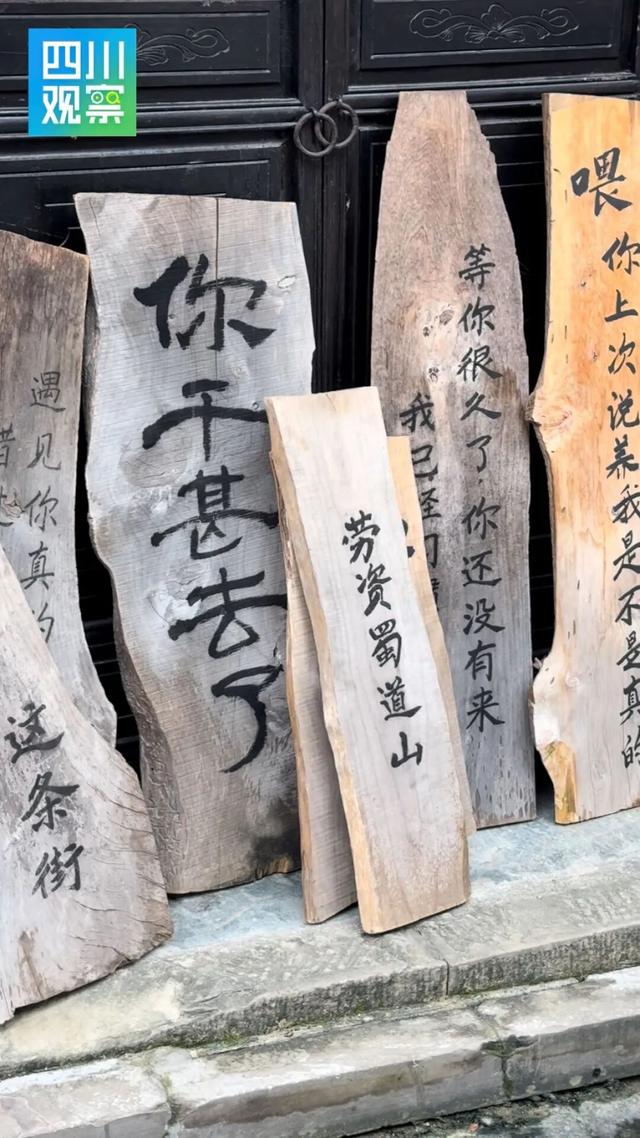 四川
观察
遇见你真的
这条街
你干甚去了
劳资蜀道山
等你很久了,你还没有来
我已经
喂
你上次说养我是不是真的